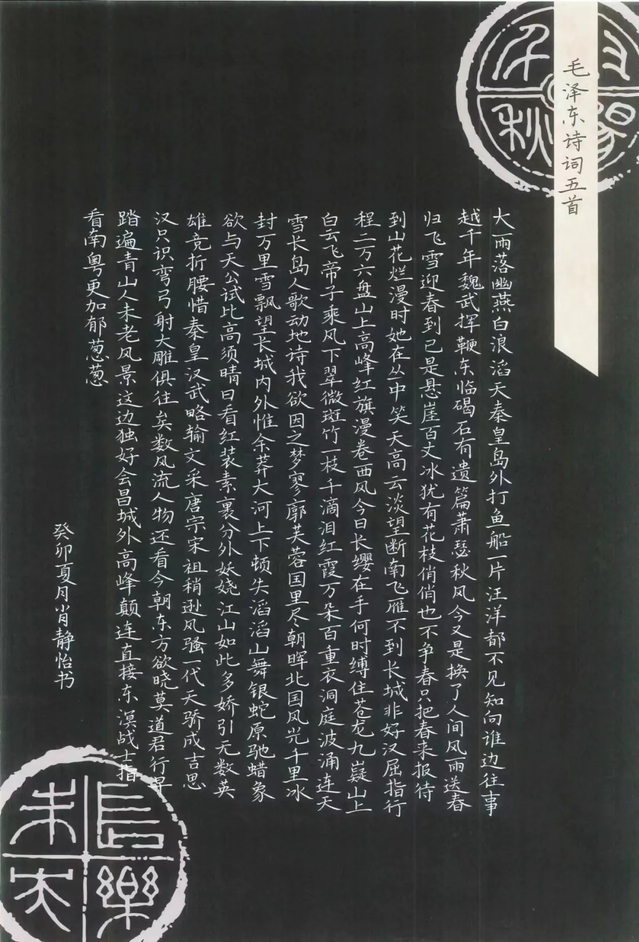 毛泽东诗词五首
大雨落幽燕白浪滔天秦皇岛外打鱼船一片汪洋都不见知向谁边往事
越千年魏武挥鞭东临碣石有遗篇萧瑟秋风今又是换了人间风雨送春
归飞雪迎春到已是悬崖百丈冰犹有花枝俏俏也不争春只把春来报待
到山花烂漫时她在丛中笑天高云淡望断南飞雁不到长城非好汉屈指行
程二万六盘山上高峰红旗漫卷西风今日长缨在手何时缚住苍龙九嶷山上
白云飞帝子乘风下翠微斑竹一枝千滴泪红霞万朵百重衣洞庭波涌连天
雪长岛人歌动地诗我欲因之梦寥廓芙蓉国里尽朝晖北国风光千里冰
封万里雪飘望长城内外惟余莽大河上下顿失滔滔山舞银蛇原驰蜡象
欲与天公试比高须晴日看红装素裹分外妖娆江山如此多娇引无数英
雄竞折腰惜秦皇汉武略输文采唐宗宋祖稍逊风骚一代天骄成吉思
汉只识弯弓射大雕俱往矣数风流人物还看今朝东方欲晓莫道君行早
踏遍青山人未老风景这边独好会昌城外高峰颠连直接东溟战士指
看南粤更加郁葱葱
癸卯夏月肖静怡书
長樂未央